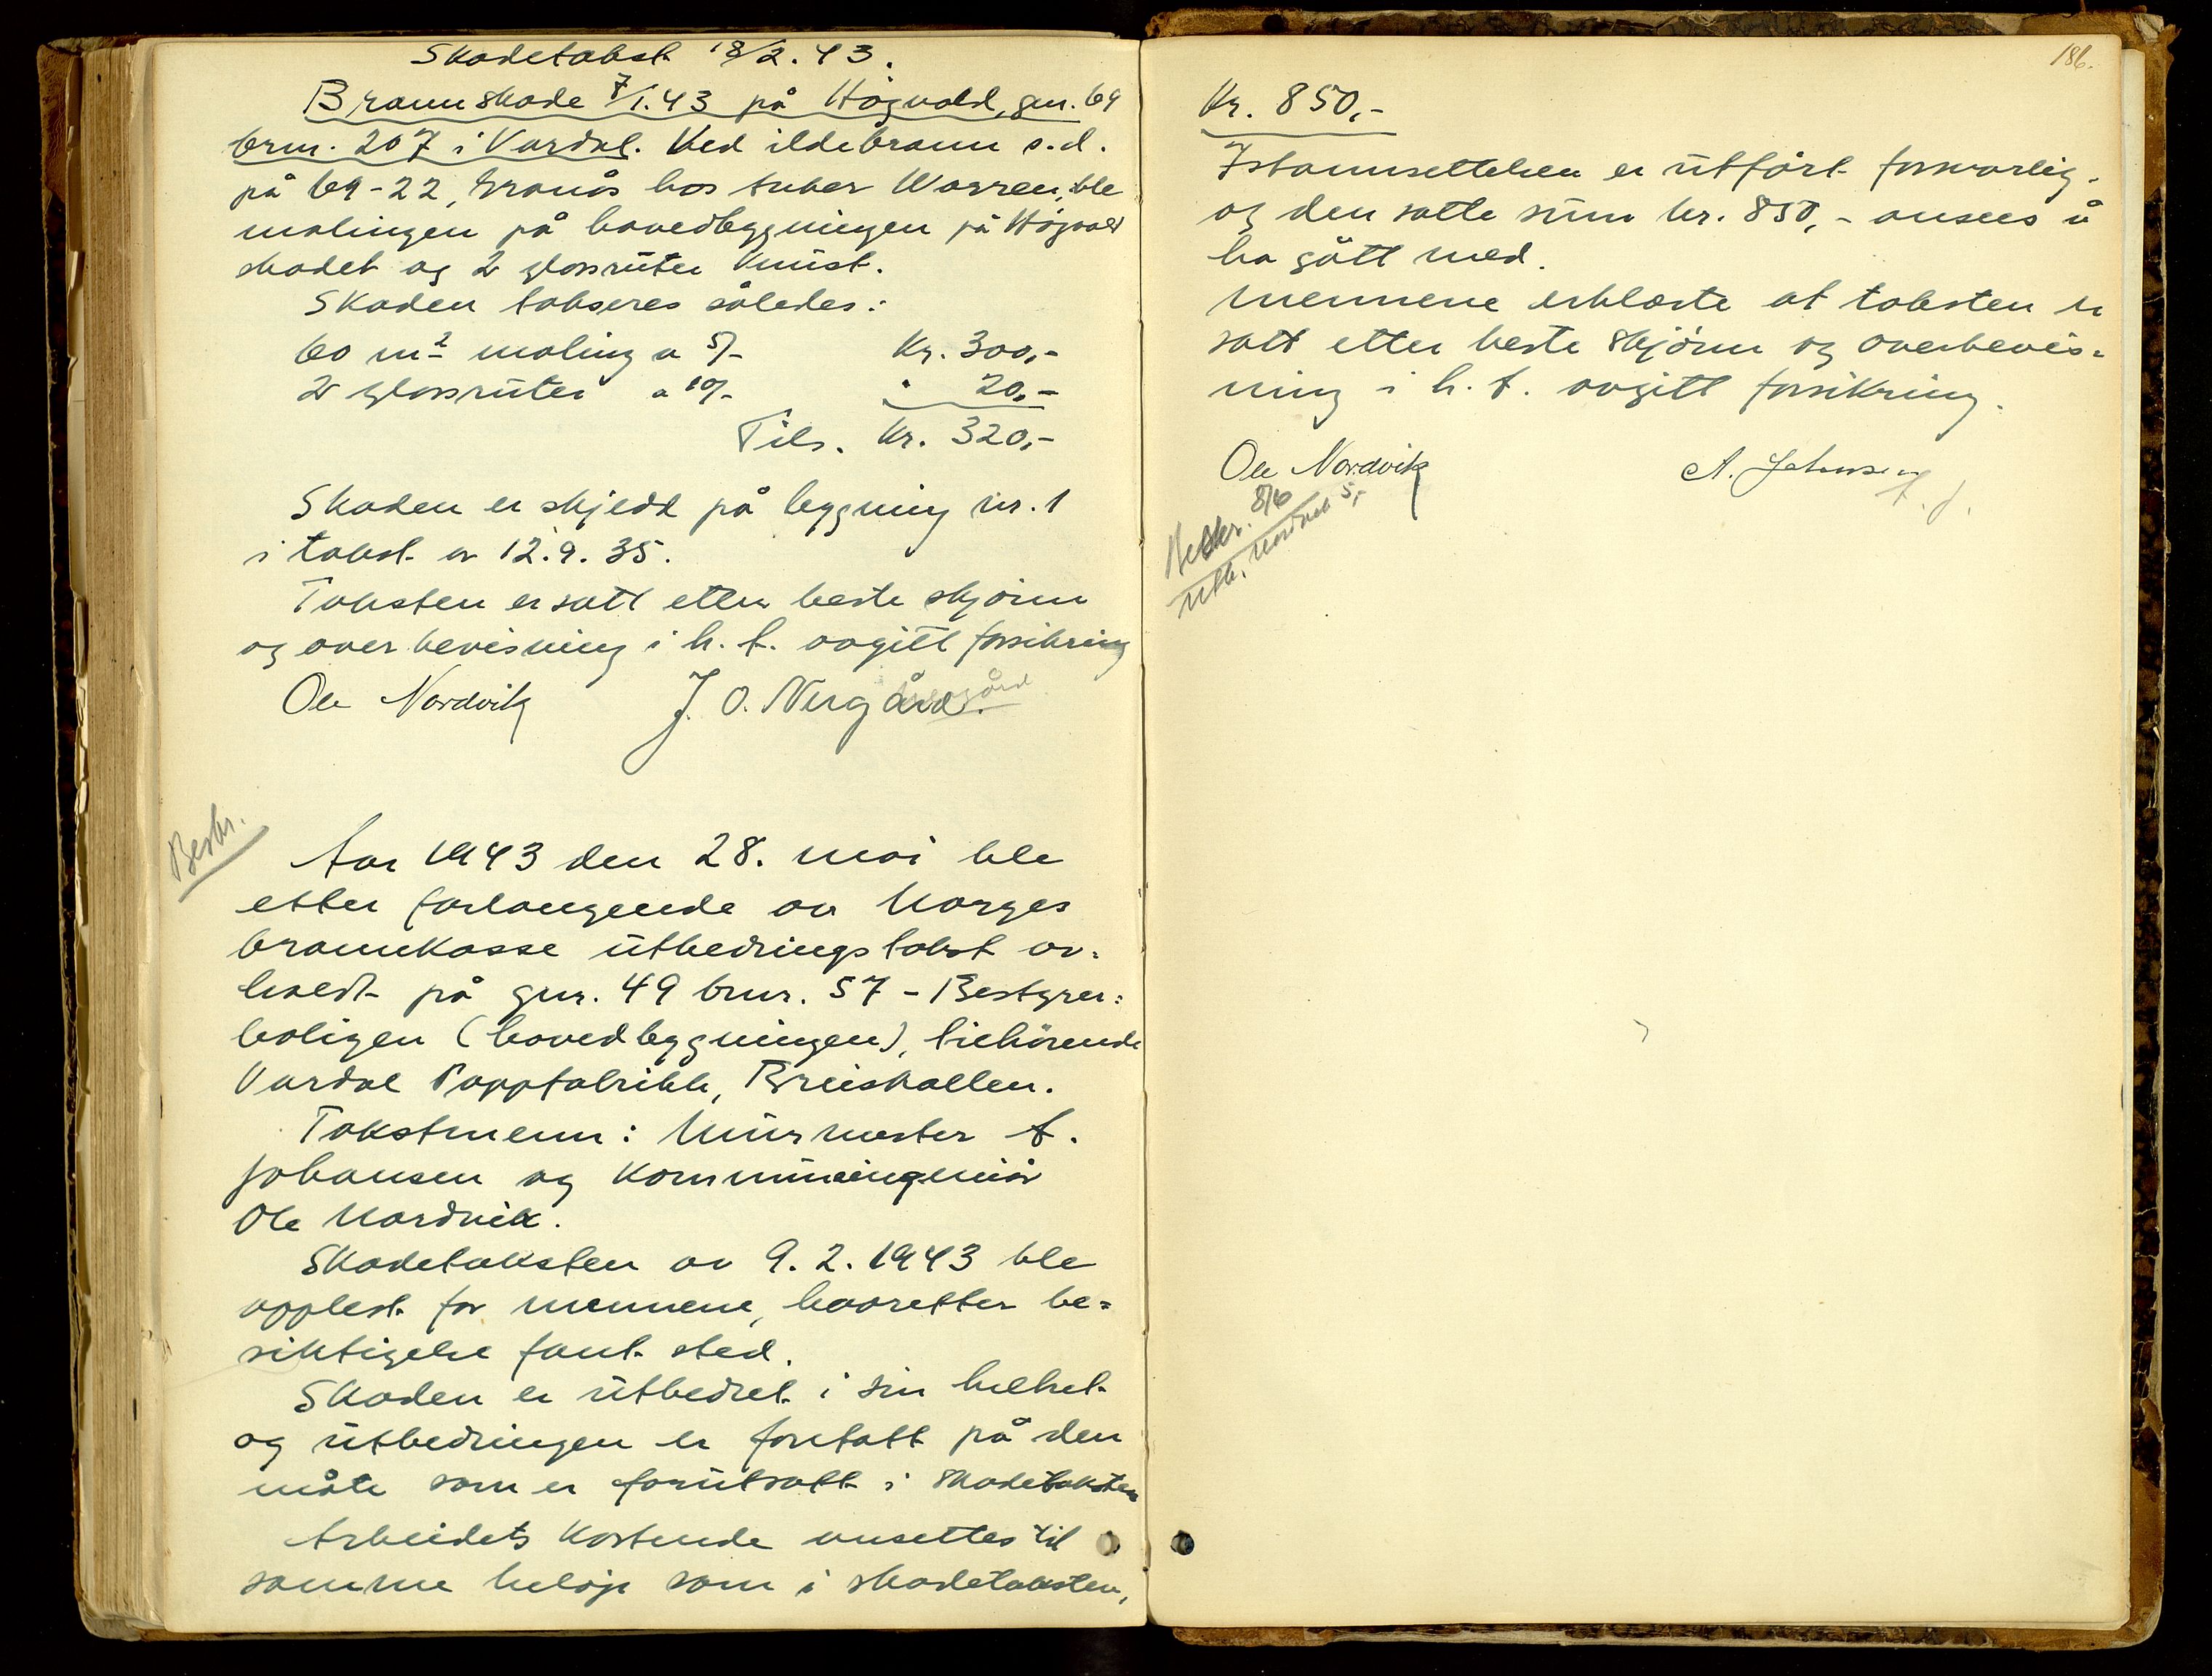 Skadetakst 18/2. 43.
Brannskade 7/1.43 på Högvold, gnr. 69
brnr. 207 i Vardal. Ved ildebrann s.d.
på 69-22, Granås hos Warren, ble
malingen på hovedbygningen på Högvold
skadet og 2 glassruter knust.
Skaden takseres således:
60 m² maling a 5/- Kr. 300,-
2 glassruter a 10/- " 20,-
Tils. Kr. 320,-
Skaden er skjedd på bygning nr. 1
i takst av 12.9.35.
Taksten er satt etter beste skjönn
og overbevisning i h. t. avgitt forsikring
Ole Nordvik J. O. Nergård.
Nergård
Beskr.
Aar 1943 den 28. mai ble
etter forlangende av Norges
brannkasse utbedringstakst av-
holdt på gnr. 49 bnr. 57 - Bestyrer-
boligen (hovedbygningen), tilhörende
Vardal Pappfabrikk, Breiskallen.
Takstmenn: Murmester A.
Johansen og Kommuneingeniör
Ole Nordvik.
Skadetaksten av 9.2.1943 ble
opplest for mennene, hvoretter be-
siktigelse fant sted.
Skaden er utbedret i sin helhet
og utbedringen er foretatt på den
måte som er forutsatt i skadetaksten
Arbeidets kostende ansettes til
samme belöp som i skadetaksten,
186.
Kr. 850,-
Istannsettelsen er utfört forsvarlig.
og den satte sum kr. 850,- ansees å
ha gått med.
Mennene erklærte at taksten er
satt etter beste skjönn og overbevis-
ning i h. t. avgitt forsikring.
Ole Nordvik A. Johansen
A. J.
Beskr. 8/6
Utb. Nordvik 5,-